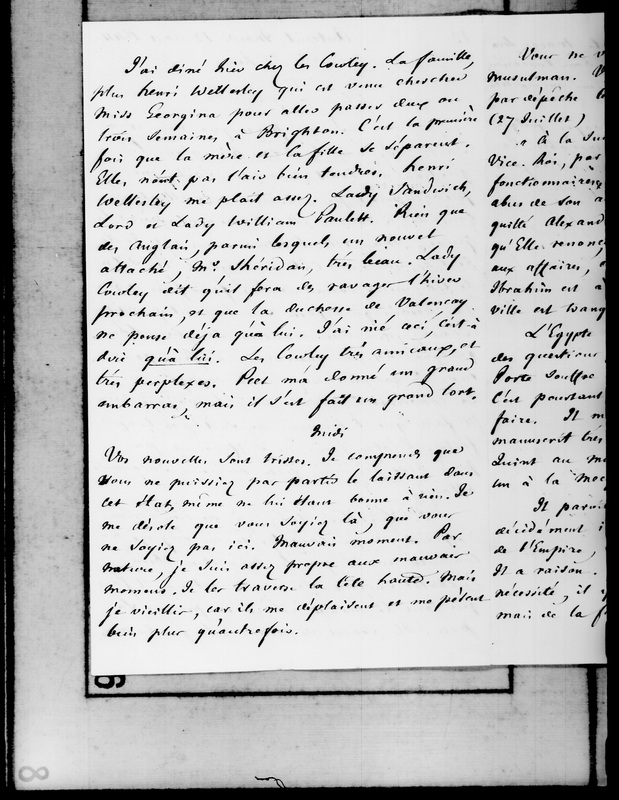 J'ai diné hier chez les Cowley. La famille,
plus henri Wellesley qui est venu chercher
Miss Georgina pour aller passer deux ou
trois semaines à Brighton. C'est la première
fois que la mère et la fille se séparent.
Elles n'ont pas l'air bien tendres. henri
Wellesley me plait assez. Lady Sandwich,
Lord et Lady William Paulett. Rien que
des Anglais, parmi lesquels un nouvel
attaché, Mr. Shéridan, très beau. Lady
Cowley dit qu'il fera des ravages l'hiver
prochain, et que la duchesse de Valençay
ne pense déja qu'à lui. J'ai nié ceci, c'est-à
dire qu'à lui. Les Cowley très amicaux, et
très perplexes. Peel m'a donné un grand
embarras, mais il s'est fait un grand tort.
Midi
Vos nouvelles sont tristes. Je comprends que
vous ne puissiez pas partir le laissant dans
cet état, même ne lui étant bonne à rien. Je
me désole que vous soyiez là, que vous
ne soyiez pas ici. Mauvais moment. Par
nature, je suis assez propre aux mauvais
momens. Je les traverse la tête haute. Mais
je vieillis, car ils me déplaisent et me pèsent
bien plus qu'autrefois.
Vous ne v
musulman. V
par dépêche
(27 Juillet)
" à la
Vice-Roi, par
fonctionnaires
abus de son a
quitté Alexand
qu'Elle renonc
aux affaires,
Ibrahim est à
ville est
L'Egypte
des questions
Porte souffre
C'est pourtant
faire. It m
manuscrit très
Quint au
un à la
It parait
décidément i
de l'Empire,
It a raison.
nécessité, il
mais de la f
8